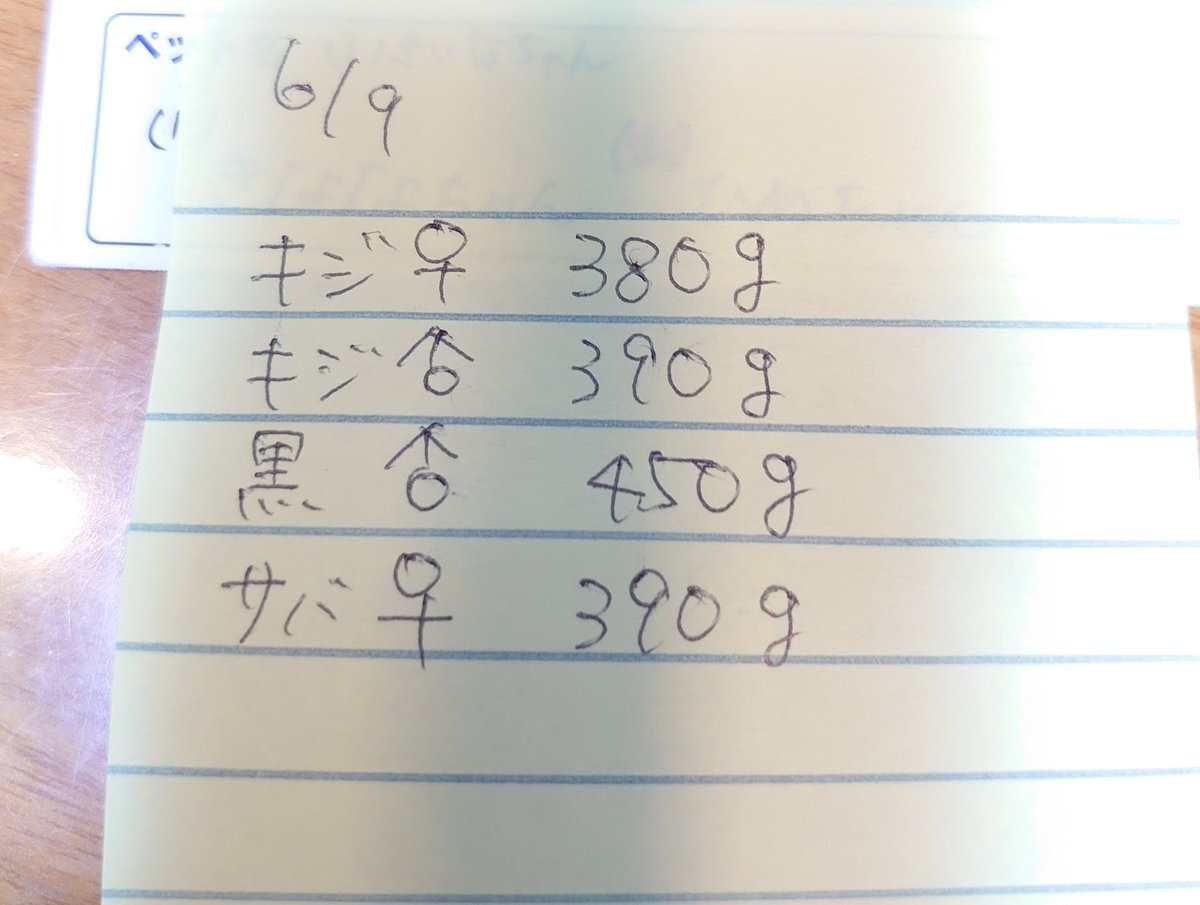 6/9
キジ♀ 380g
キジ♂ 390g
黒 ♂ 450g
サバ♀ 390g